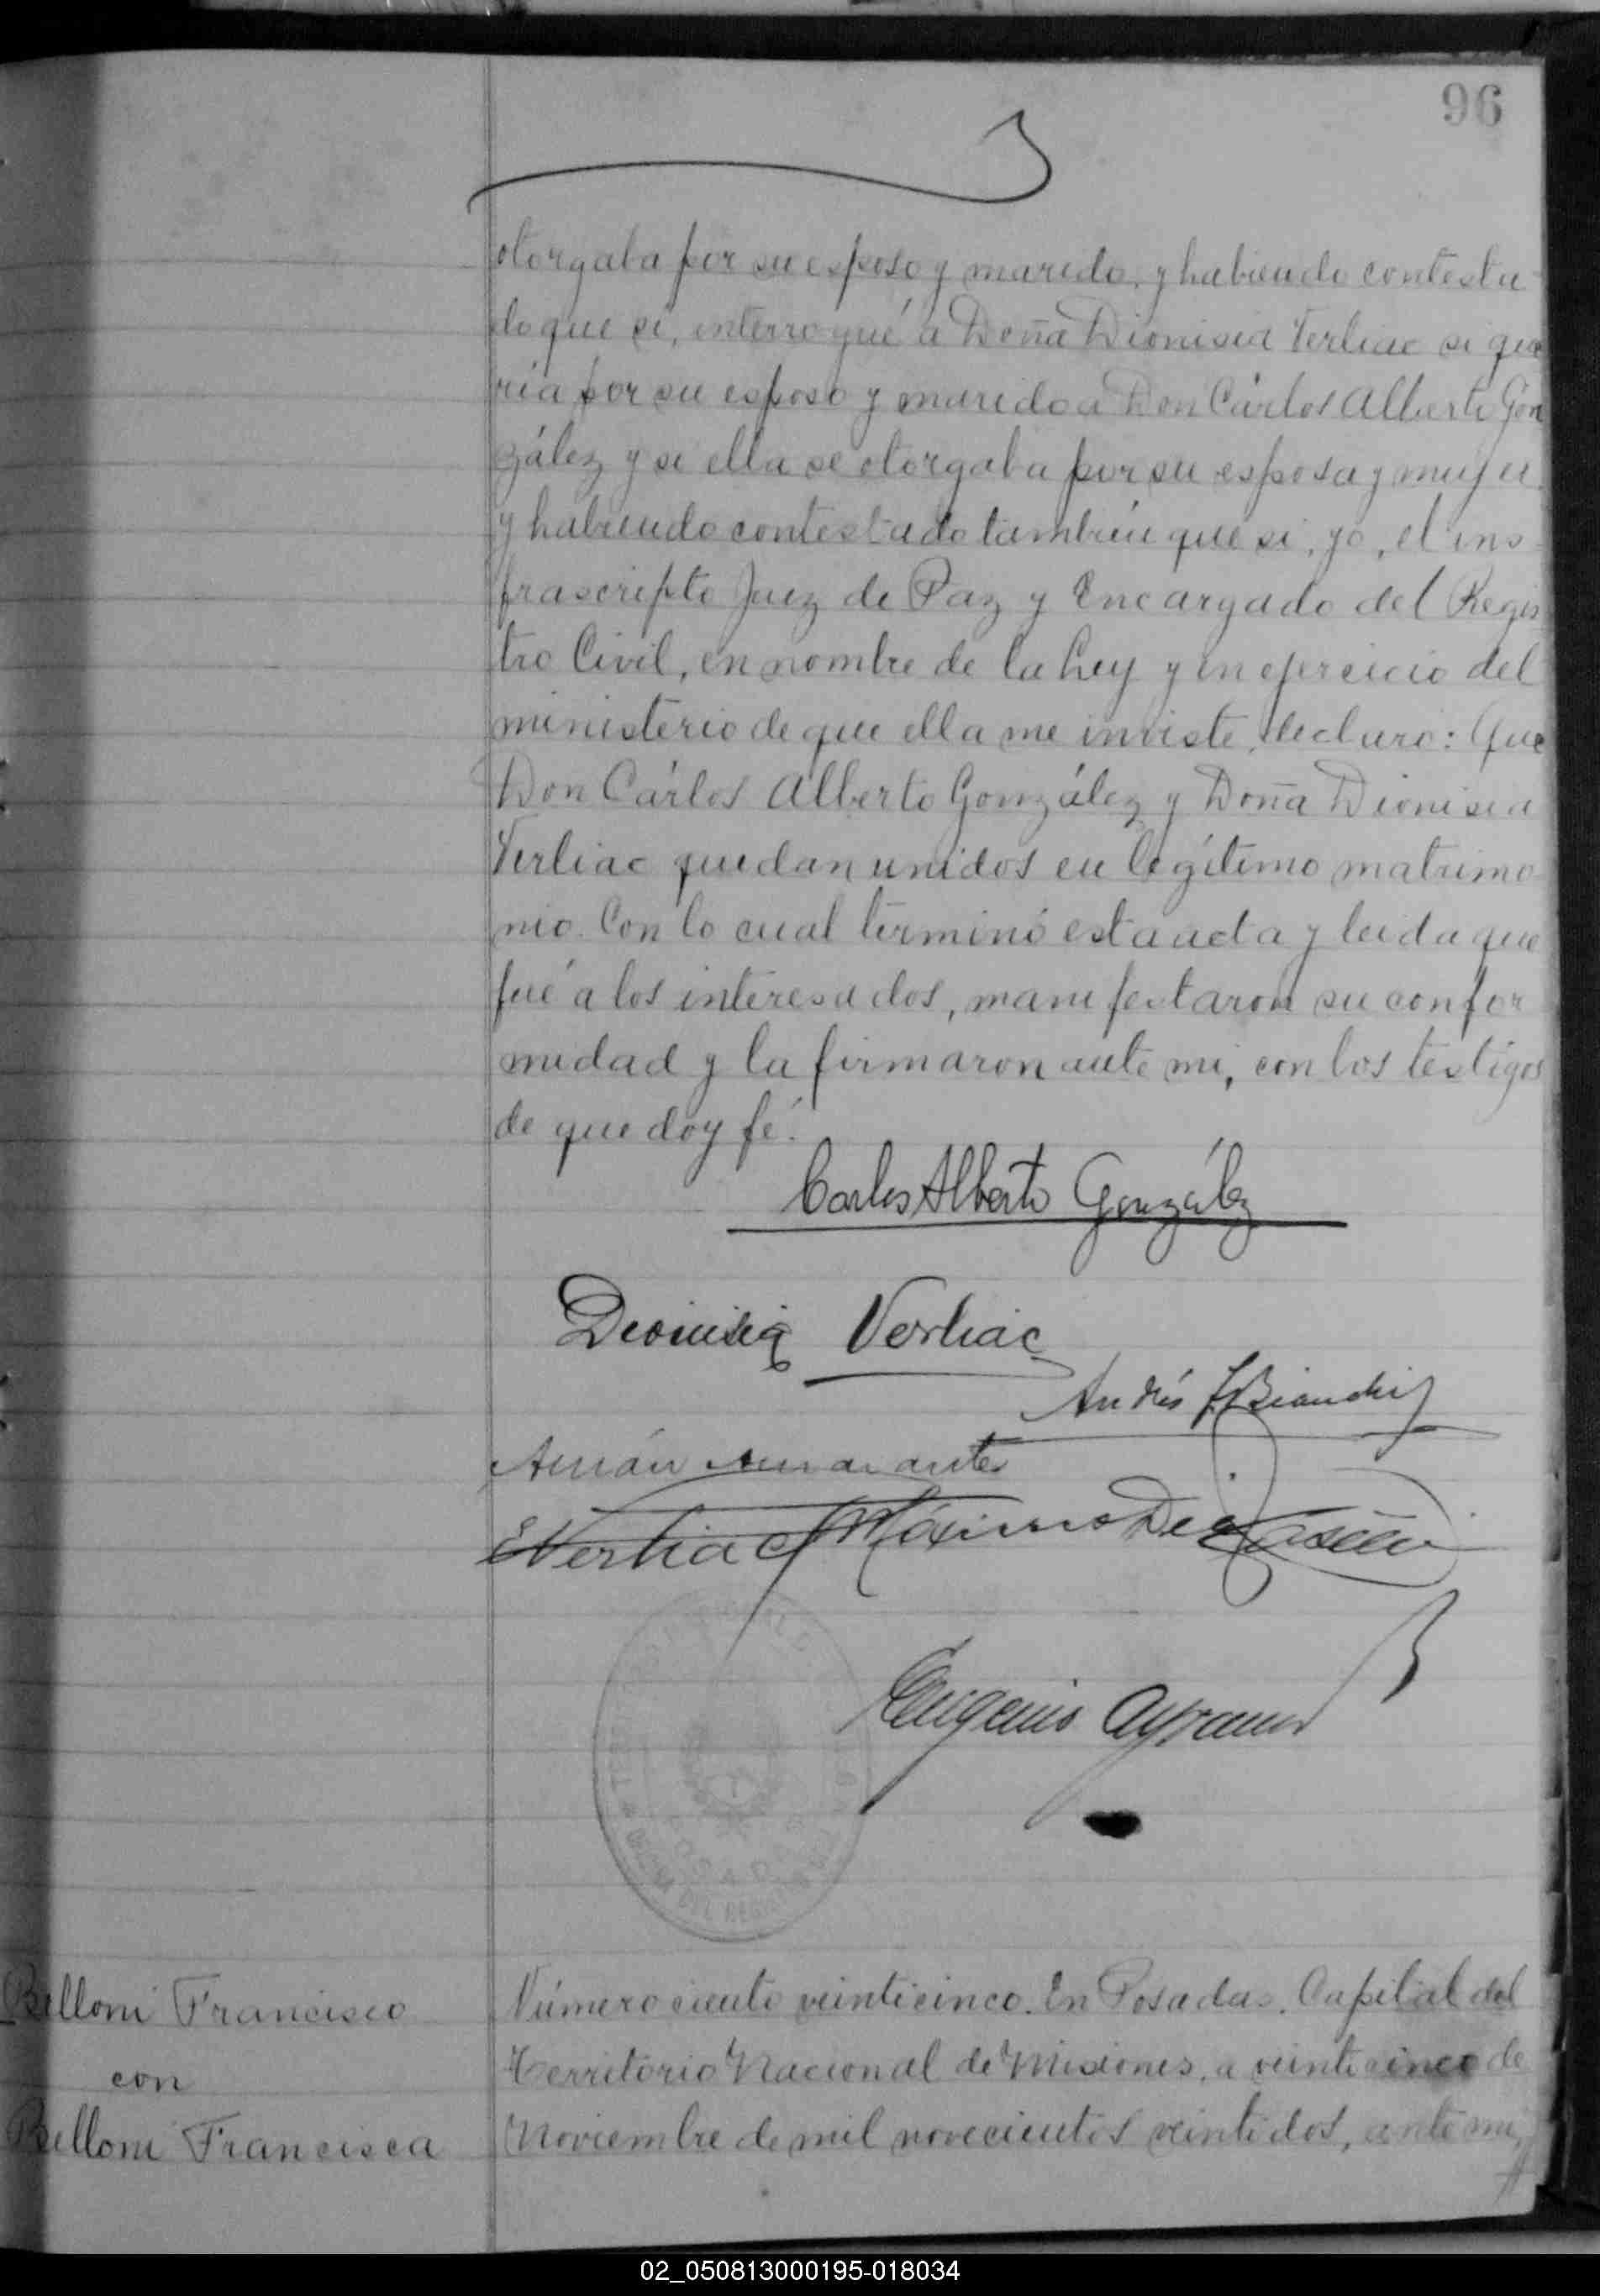 96
otorgaba por su esposo y marido, y habiendo contesta-
do que sí, interrogué a Doña Dionisia Verliac si que
ría por su esposo y marido a Don Cárlos Alberto Gon
zález y si ella se otorgaba por su esposa y mujer,
y habiendo contestado también que si, yo, el ins-
frascripto Juez de Paz y Encargado del Regis
tro Civil, en nombre de la Ley y en ejercicio del
ministerio de que ella me inviste, declaro: Que
Don Cárlos Alberto González y Doña Dionisia
Verliac quedan unidos en legítimo matrimo-
nio. Con lo cual terminó esta acta y leida que
fué a los interesados, manifestaron su confor
midad y la firmaron ante mi, con los testigos
de que doy fé.
Carlos Alberto González
Dionisia Verliac
Andrés Bianchi
Amarante
EVerliac Máximo De
Eugenio
POSADAS
OFICINA DEL REGISTRO
Belloni Francisco
con
Belloni Francisca
Número ciento veinticinco. En Posadas, Capital del
Territorio Nacional de Misiones, a veinticinco de
Noviembre de mil novecientos veintidos, ante mi,
02_050813000195-018034